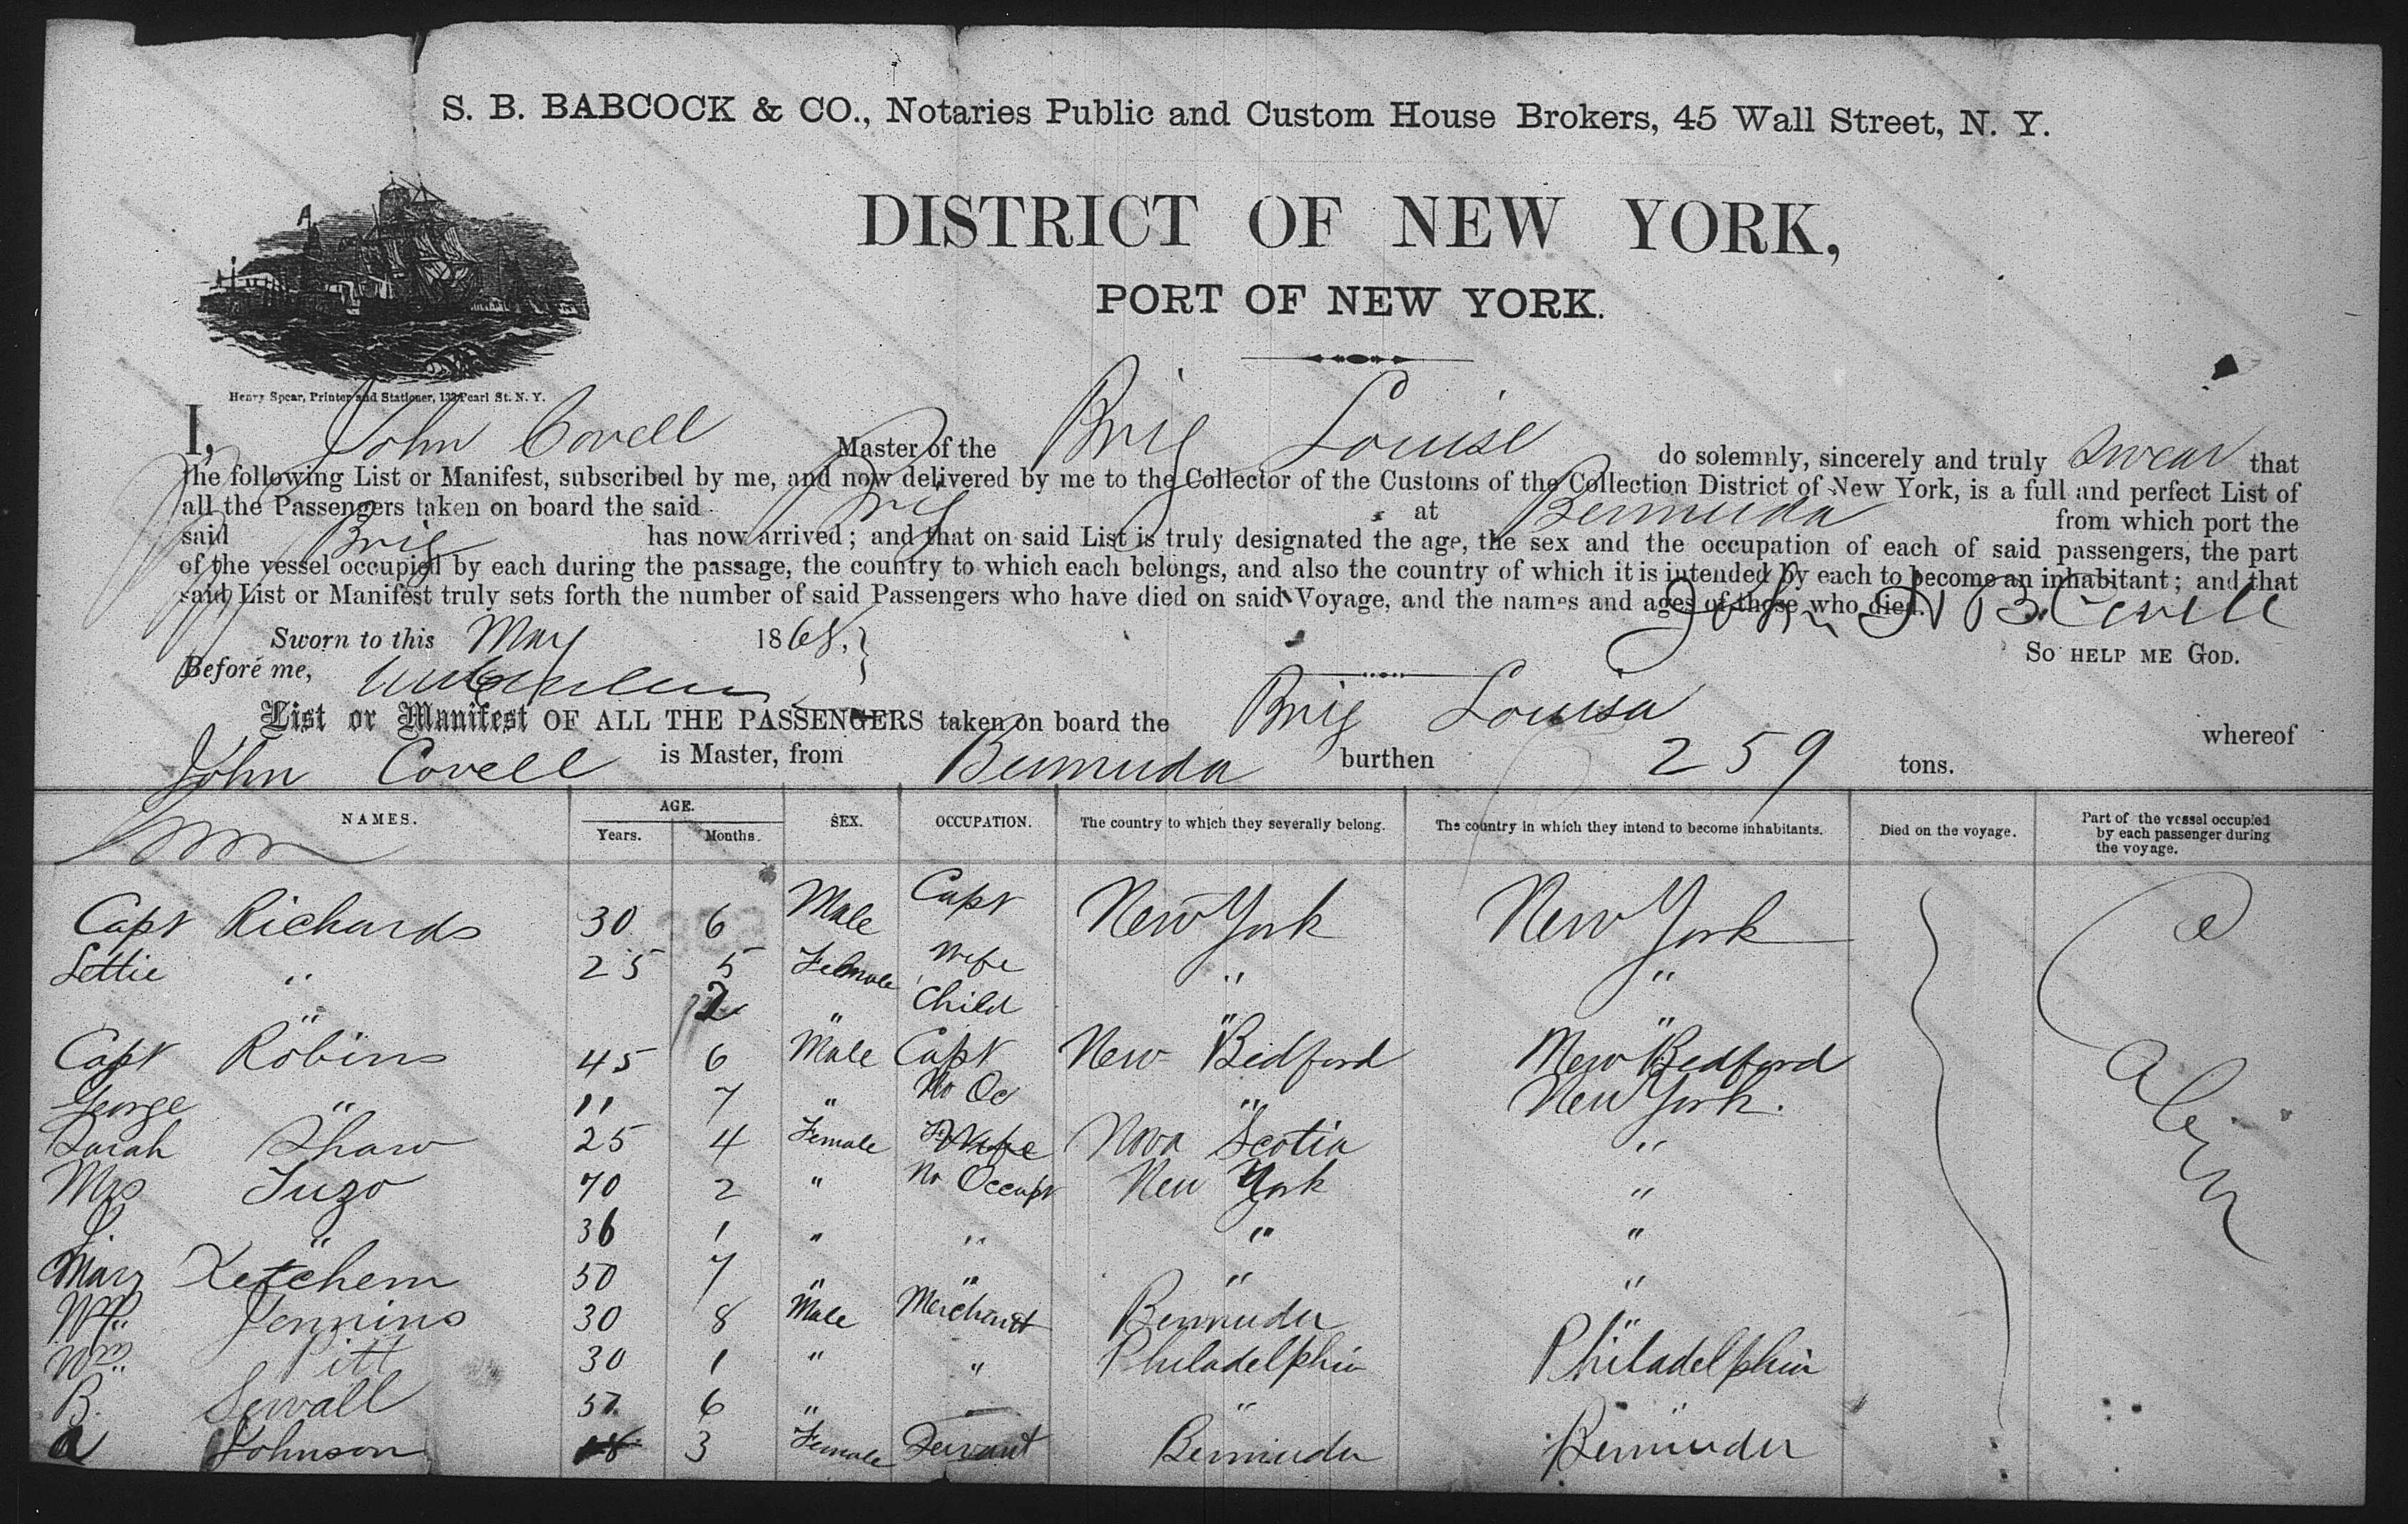 S. B. BABCOCK & CO., Notaries Public and Custom House Brokers, 45 Wall Street, N. Y.
DISTRICT OF NEW YORK,
PORT OF NEW YORK.
Henry Spear, Printer and Stationer, 132 Pearl St. N. Y.
I, John Covell Master of the Brig Louise do solemnly, sincerely and truly swear that
the following List or Manifest, subscribed by me, and now delivered by me to the Collector of the Customs of the Collection District of New York, is a full and perfect List of
all the Passengers taken on board the said Brig at Bermuda from which port the
said Brig has now arrived; and that on said List is truly designated the age, the sex and the occupation of each of said passengers, the part
of the vessel occupied by each during the passage, the country to which each belongs, and also the country of which it is intended by each to become an inhabitant; and that
said List or Manifest truly sets forth the number of said Passengers who have died on said Voyage, and the names and ages of those who died.
John Covell
Sworn to this May 1868.
SO HELP ME GOD.
Before me,
List or Manifest OF ALL THE PASSENGERS taken on board the Brig Louisa whereof
John Covell is Master, from Bermuda burthen 259 tons.
NAMES. AGE. Years. Months. SEX. OCCUPATION. The country to which they severally belong. The country in which they intend to become inhabitants. Died on the voyage. Part of the vessel occupied by each passenger during the voyage.
Capt Richards 30 6 Male Capt New York New York
Lettie " 25 5 Female Wife " "
" 2 " Child " "
Capt Robins 45 6 Male Capt New Bedford New Bedford
George " 11 7 " No Oc " New York.
Sarah Shaw 25 4 Female Wife Nova Scotia "
Mrs Tuzo 70 2 " No Occupt New York "
" 36 1 " " " "
Mary Ketchem 50 7 " " " "
Jennins 30 8 Male Merchant Bermuder "
Wm Pitt 30 1 " " Philadelphia Philadelphia
B. Sewall 6 " "
a Johnson 18 3 Female Servant Bermuder Bermuder